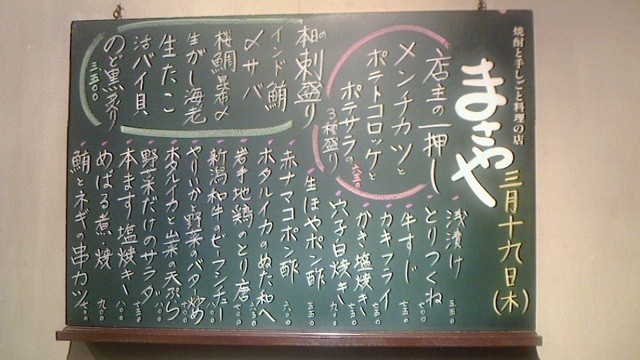 焼酎と手しごと料理の店
まさや
三月十九日(木)
店主の一押し
メンチカツと
ポテトコロッケと
ポテサラの
3種盛り
本日の刺盛り
インド鮪
〆サバ
桜鯛昆布〆
生がし海老
生たこ
活バイ貝
のど黒炙り
三、五〇〇
浅漬け
とりつくね
牛すじ
カキフライ
かき塩焼き
穴子白焼き
生ほやポン酢
赤ナマコポン酢
ホタルイカのぬた和へ
岩手地鶏のとり唐
新潟和牛のビーフシチュー
やりいかと野菜のバタ炒め
ホタルイカと山菜の天ぷら
野菜だけのサラダ
本ます塩焼き
めばる煮・焼
鮪とネギの串カツ